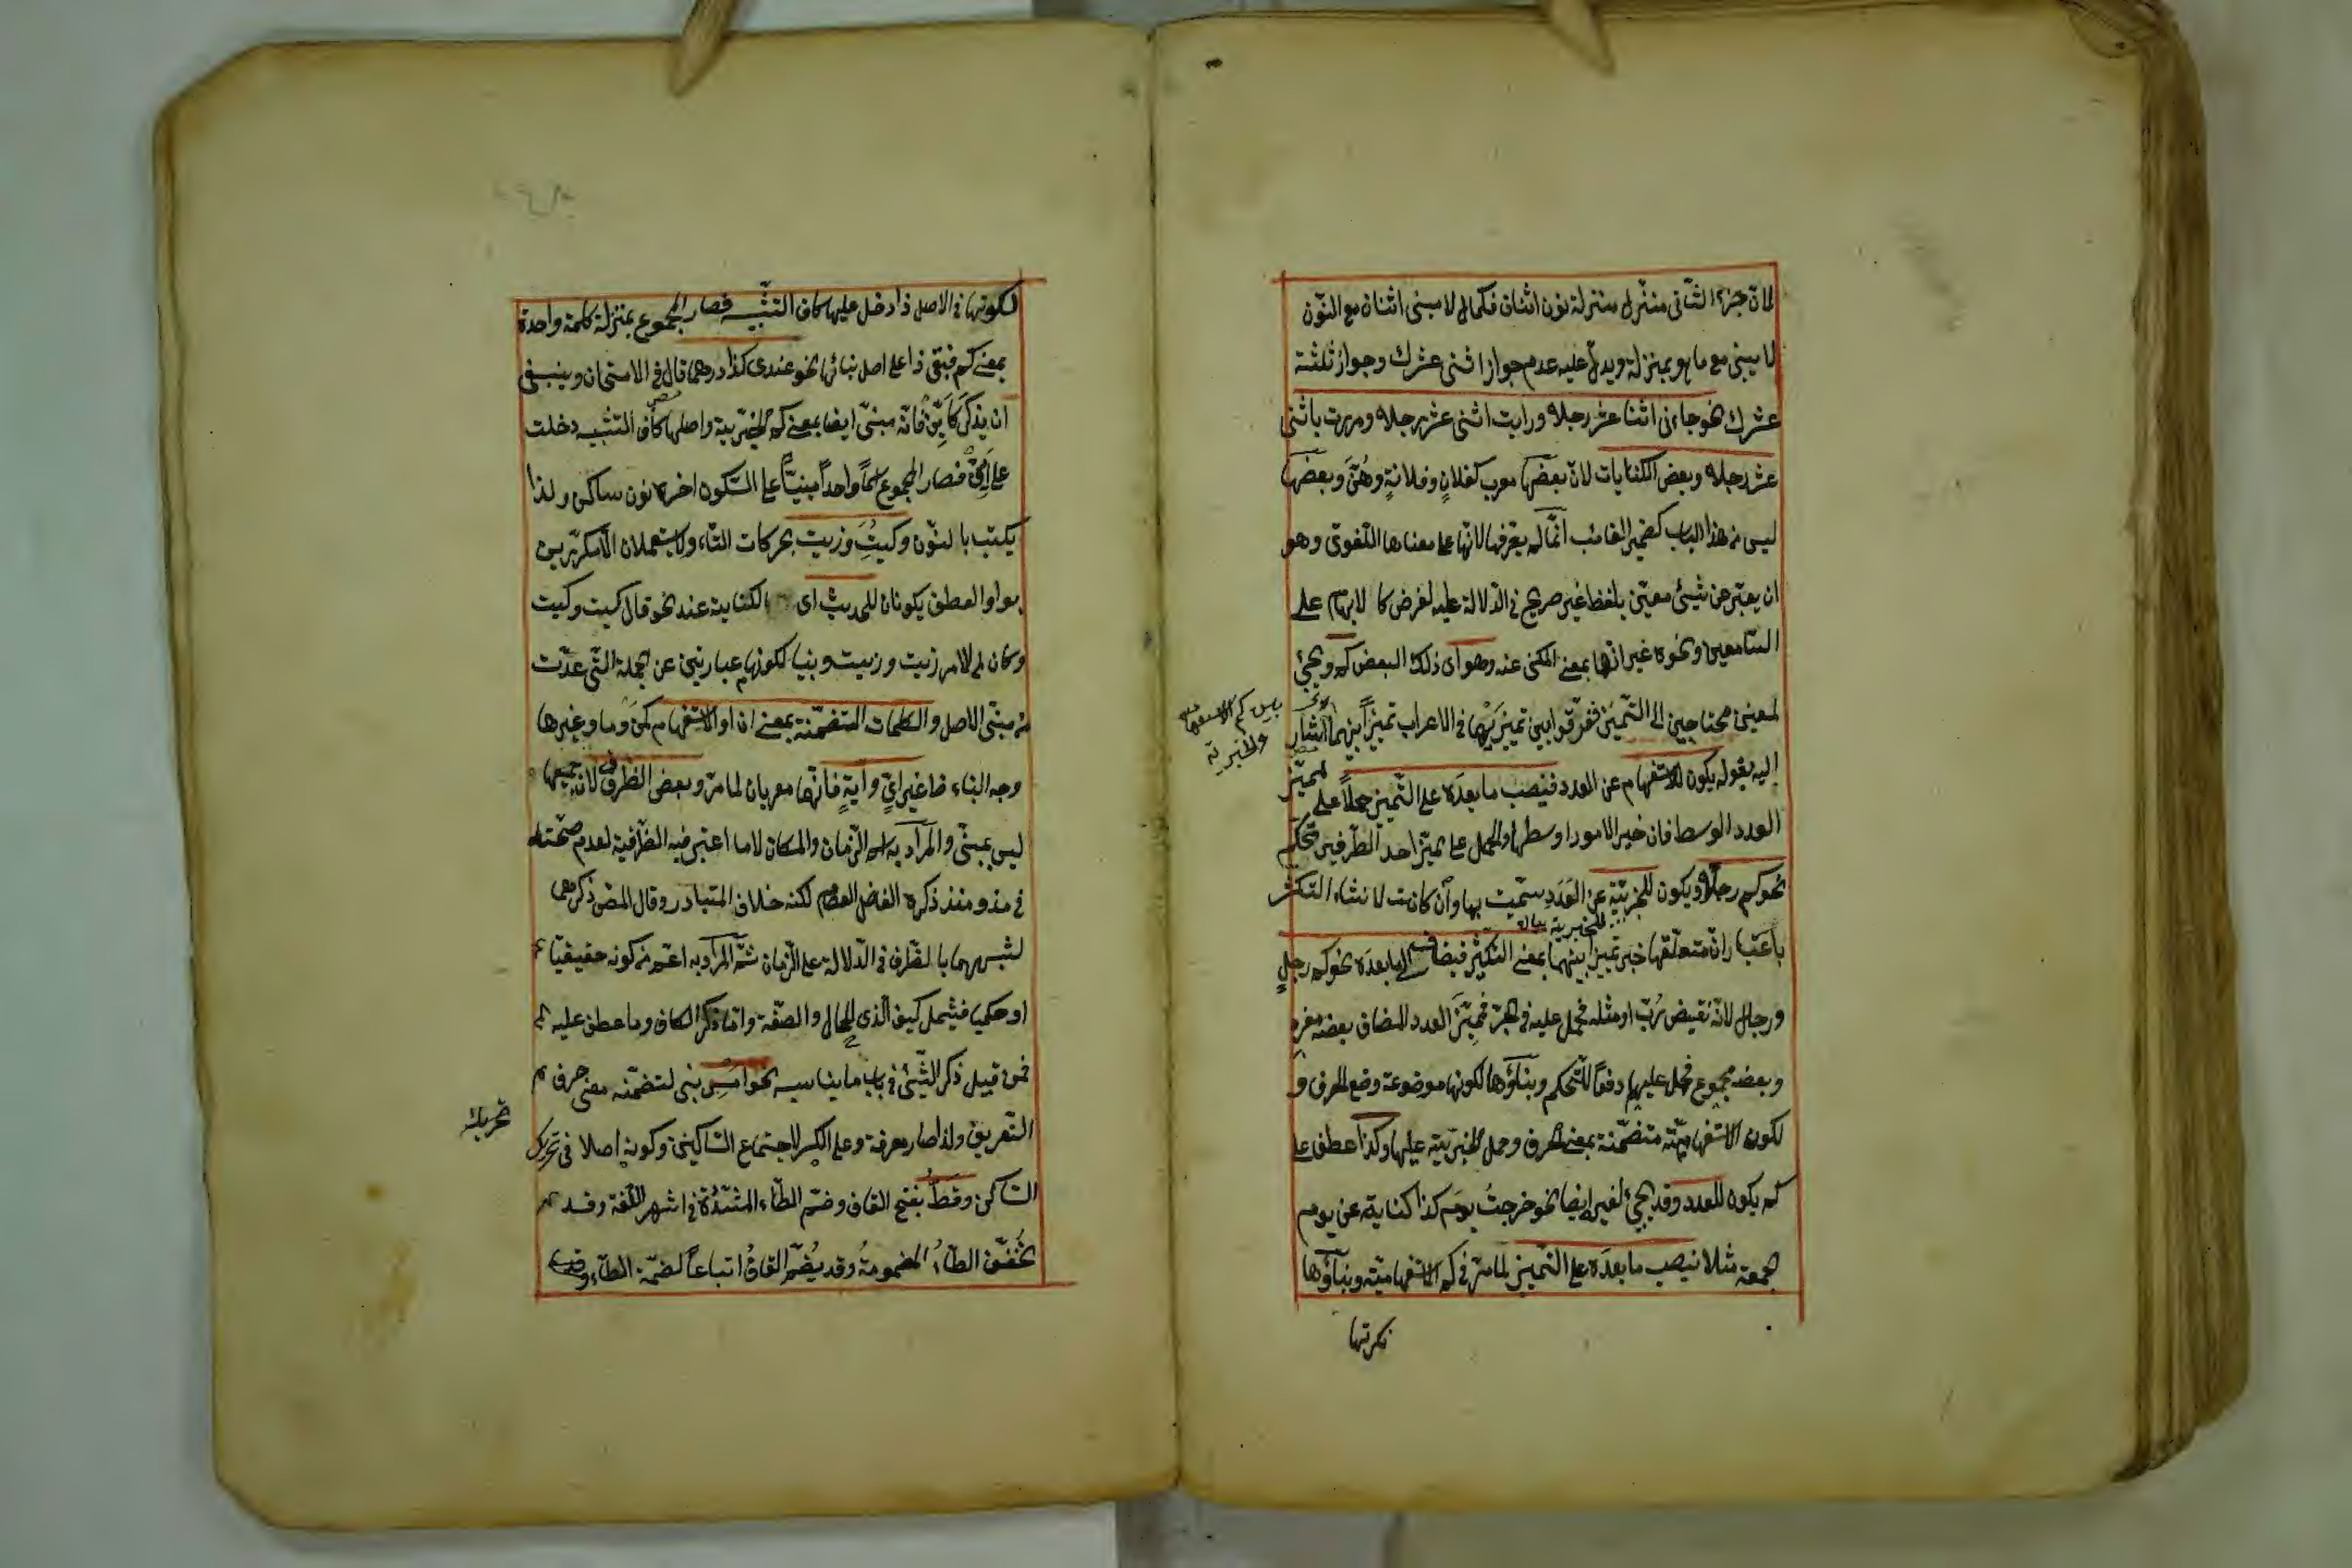 لان جزءه الثاني منزل منزلة نون اثنان فكما لا مبني اثنان مع النون
لا يبني مع ما هو بمنزلة ويدل عليه عدم جواز اثني عشرك وجواز ثلثة
عشرك نحو جاءني اثنا عشر رجلا ورايت اثني عشر رجلا ومررت باثني
عشر رجلا وبعض الكنايات لان بعضها معرب كفلان وفلانة وهن وبعضها
ليس من هذا الباب كضمير الغائب انما لم يعرفها لانها على معناها اللغوي وهو
ان يعبر عن شيئ معين بلفظ غير صريح في الدلالة عليه لغرض كالابهام على
السامعين ونحوه غير انها بمعنى المكنى عنه وهو اي ذلك البعض كم ويجئ
لمعنيين محتاجين الى التمييز ففرقوا بين تمييزيهما في الاعراب تمييزا بينهما اشار
اليه بقوله يكون للاستفهام عن العدد فينصب ما بعده على التمييز حملا على مميز
العدد الوسط فان خير الامور اوسطها والحمل على مميز احد الطرفين تحكم
نحو كم رجلا ويكون للخبرية عن العدد سميت بها وان كانت لانشاء التكثير
باعتبار ان متعلقها خبر تمييزا بينهما بمعنى التكثير فيضاف الى ما بعده نحو كم رجل
ورجال لانه نقيض رب او مثله فحمل عليه في الجر فمميز العدد المضاف بعضه مفرد
وبعضه مجموع فحمل عليهما دفعا للتحكم وبناؤها لكونها موضوعة وضع الحرف و
لكون الاستفهامية متضمنة بمعنى الحرف وحمل الخبرية عليها وكذا عطف على
كم يكون للعدد وقد يجئ لغيره ايضا نحو خرجت يوم كذا كناية عن يوم
جمعة مثلا نيصب ما بعده على التمييز لما مر في كم الاستفهامية وبناؤها
بيان كم الاستفهامية
والخبرية
لكونها في الاصل ذا دخل عليها كاف التشبيه فصار المجموع بمنزلة كلمة واحدة
بمعنى كم فبقي ذا على اصل بنائها نحو عندي كذا درهما قال في الامتحان وينبغي
ان يذكر كاين فانه مبني ايضا بمعنى كم الخبرية واصلها كاف التشبيه دخلت
على اي فصار المجموع اسما واحدا مبنيا على السكون اخره نون ساكن ولذا
يكتب بالنون وكيت وزيت بحركات التاء ولا يستعملان الا مكررين
بواو العطف يكونان للحديث اي الكناية عند نحو قال كيت وكيت
وكان لم لامر زيت وزيت وبنيا لكونهما عبارتين عن الجملة التي عدت
من مبني الاصل والكلمات المتضمنة بمعنى ان او الاستفهام كمن وما وغيرها
وجه البناء ما غير اي واية فانهما معربان لما مر وبعض الظرف لان جميعها
ليس بمبني والمراد به اسم الزمان والمكان لا ما اعتبر فيه الظرفية لعدم صحته
في مذ ومنذ ذكره الفاضل العصام لكنه خلاف المتبادر وقال المص ذكر مع
لشبههما بالظرف في الدلالة على الزمان ثم المراد به اعم من كونه حقيقيا
او حكميا فيشمل كيف الذي للحال والصفة واما ذكر الكاف وما عطف عليه
فمن قبيل ذكر الشئ في باب ما يناسبه نحو امس بني لتضمنه معنى حرف
التعريف ولذا صار معرفة وعلى الكسر لاجتماع الساكنين وكونه اصلا في تحريك
الساكن وقط بفتح القاف وضم الطاء المشددة في اشهر اللغة وقد
تخفف الطاء المضمومة وقد يضم القاف اتباعا لضمة الطاء وقد
تحريك